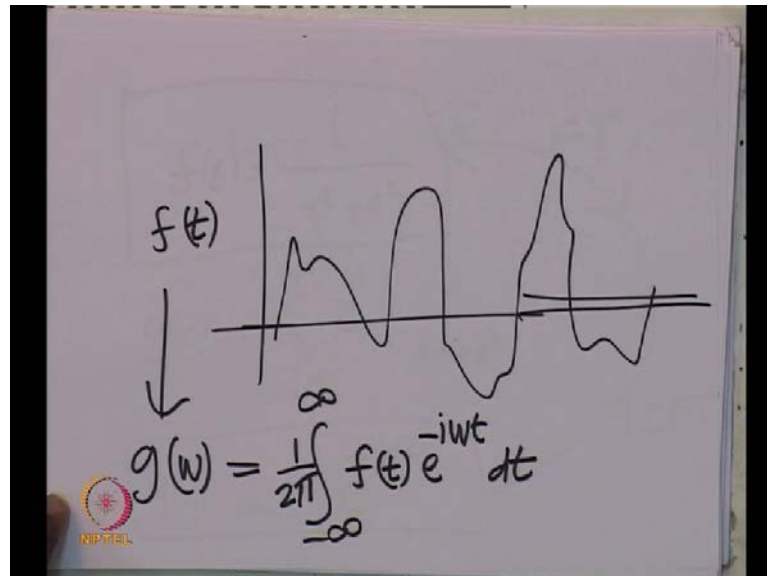 f(t)
g(w) = 1/2π ∫_{-∞}^{∞} f(t) e^{-iwt} dt
NPTEL